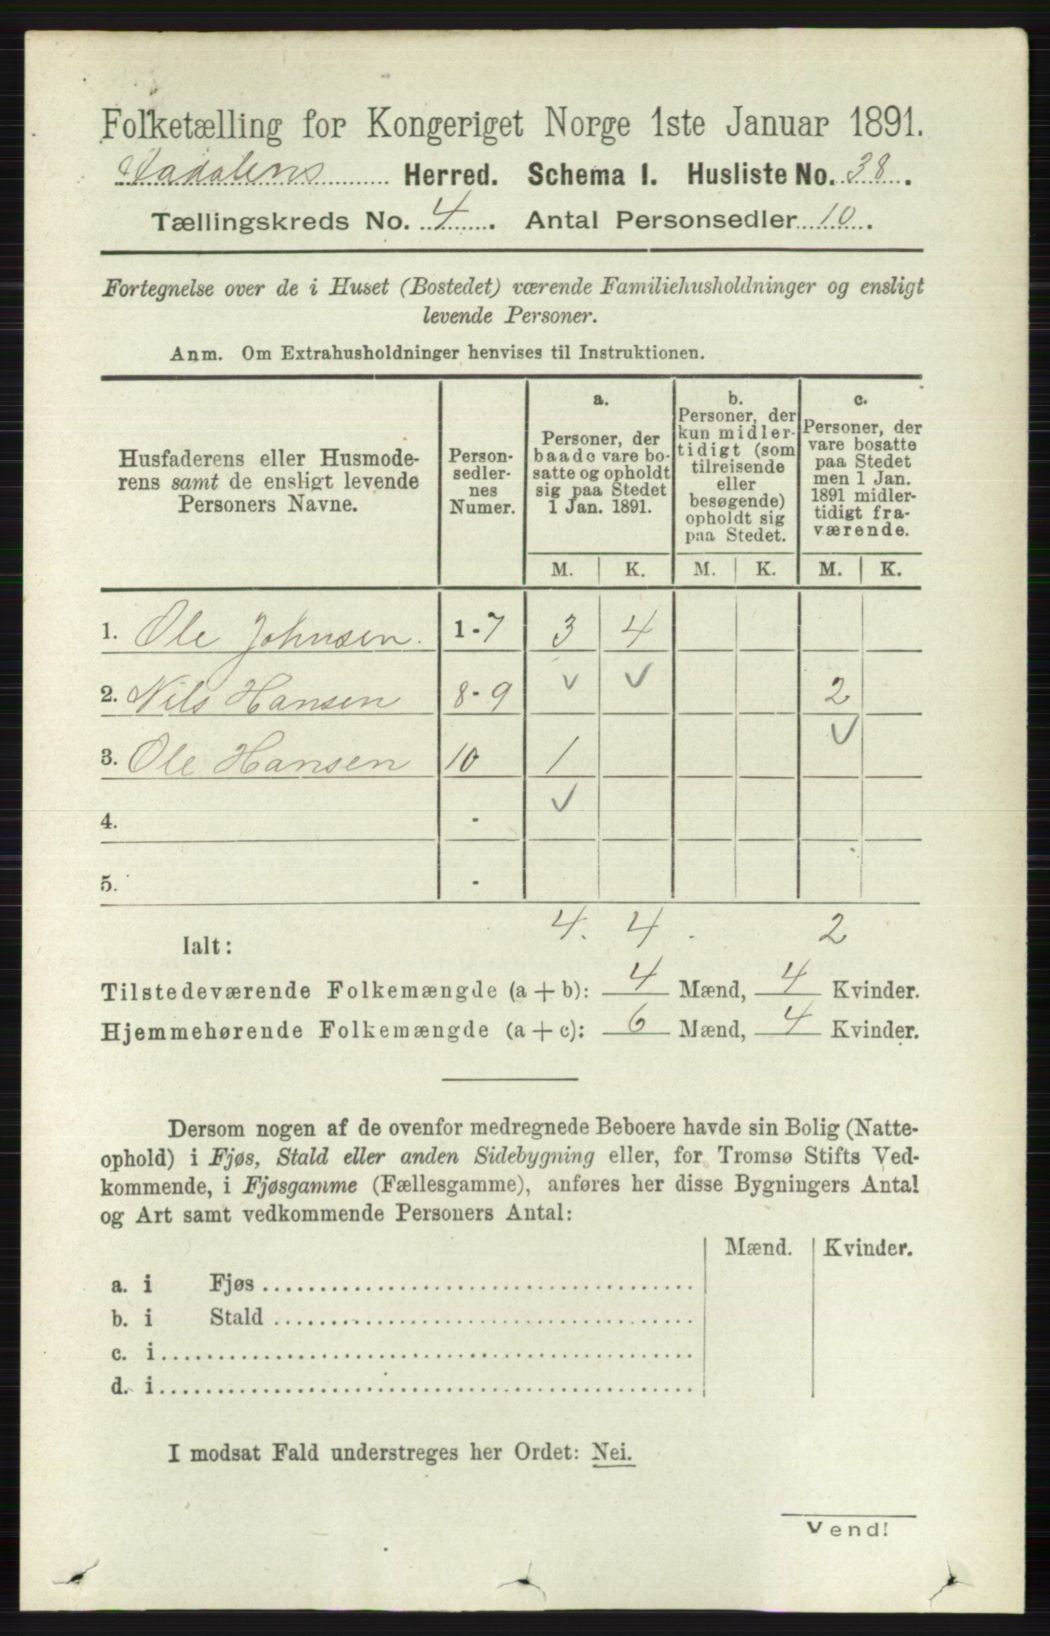 Folketælling for Kongeriget Norge 1ste Januar 1891.
Aadalens Herred. Schema I. Husliste No. 38.
Tællingskreds No. 4. Antal Personsedler 10.
Fortegnelse over de i Huset (Bostedet) værende Familiehusholdninger og ensligt
levende Personer.
Anm. Om Extrahusholdninger henvises til Instruktionen.
Husfaderens eller Husmode-
rens samt de ensligt levende
Personers Navne.
Person-
sedler-
nes
Numer.
a.
Personer, der
baade vare bo-
satte og opholdt
sig paa Stedet
1 Jan. 1891.
b.
Personer, der
kun midler-
tidigt (som
tilreisende
eller
besøgende)
opholdt sig
paa Stedet.
c.
Personer, der
vare bosatte
paa Stedet
men 1 Jan.
1891 midler-
tidigt fra-
værende.
M. K. M. K. M. K.
1. Ole Johnsen. 1-7 3 4
2. Nils Hansen 8-9 ✓ ✓ 2
3. Ole Hansen 10 1 ✓
4. - ✓
5. -
Ialt: 4. 4. 2
Tilstedeværende Folkemængde (a + b): 4 Mænd, 4 Kvinder.
Hjemmehørende Folkemængde (a + c): 6 Mænd, 4 Kvinder.
Dersom nogen af de ovenfor medregnede Beboere havde sin Bolig (Natte-
ophold) i Fjøs, Stald eller anden Sidebygning eller, for Tromsø Stifts Ved-
kommende, i Fjøsgamme (Fællesgamme), anføres her disse Bygningers Antal
og Art samt vedkommende Personers Antal:
Mænd. Kvinder.
a. i Fjøs
b. i Stald
c. i
d. i
I modsat Fald understreges her Ordet: Nei.
Vend!